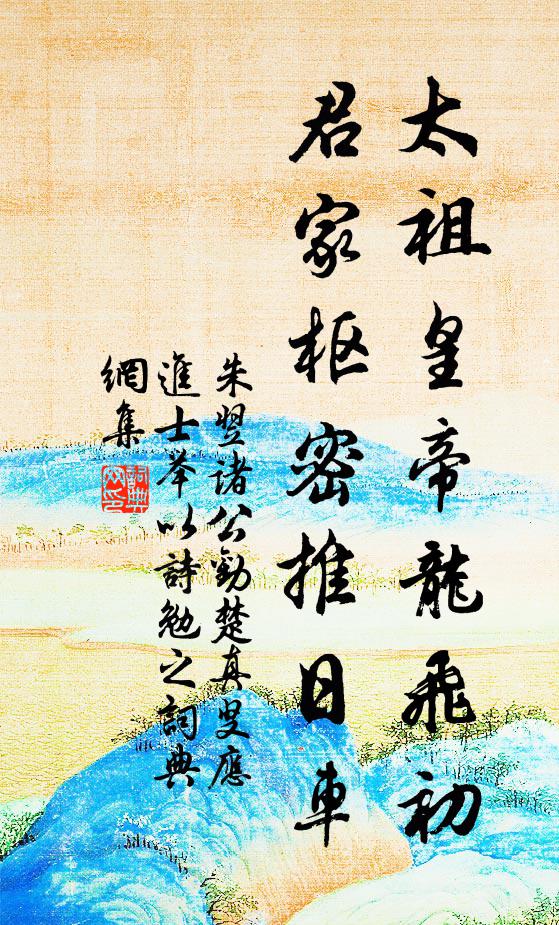 太祖皇帝龍飛初
君家枢密推日車
朱翌諸公勸楚真叟應
進士举以詩勉之詞典
網集